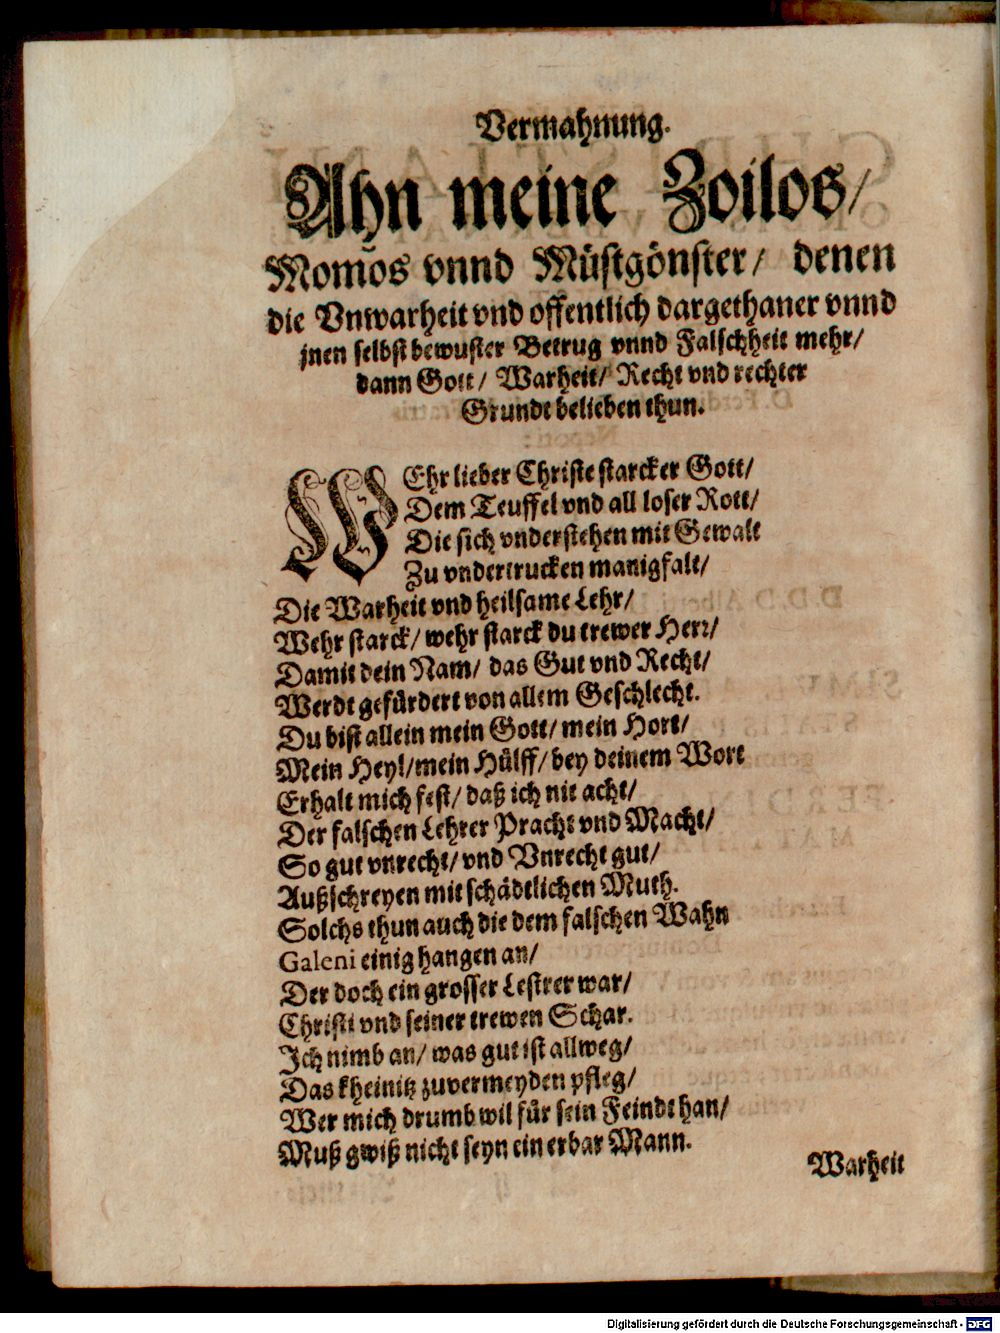 Vermahnung.
Ahn meine Zoilos/
Momos vnnd Müstgönster/ denen
die Vnwarheit vnd offentlich dargethaner vnnd
jnen selbst bewuster Betrug vnnd Falschheit mehr/
dann Gott/ Warheit/ Recht vnd rechter
Grundt belieben thun.
WEhr lieber Christe starcker Gott/
Dem Teuffel vnd all loser Rott/
Die sich vnderstehen mit Gewalt
Zu vndertrucken manigfalt/
Die Warheit vnd heilsame Lehr/
Wehr starck/ wehr starck du trewer Herr/
Damit dein Nam/ das Gut vnd Recht/
Werdt gefürdert von allem Geschlecht.
Du bist allein mein Gott/ mein Hort/
Mein Heyl/ mein Hülff/ bey deinem Wort
Erhalt mich fest/ daß ich nit acht/
Der falschen Lehrer Pracht vnd Macht/
So gut vnrecht/ vnd Vnrecht gut/
Außschreyen mit schädtlichen Muth.
Solchs thun auch die dem falschen Wahn
Galeni einig hangen an/
Der doch ein grosser Lestrer war/
Christi vnd seiner trewen Schar.
Ich nimb an/ was gut ist allweg/
Das kheinitz zuvermeyden pfleg/
Wer mich drumb wil für sein Feindt han/
Muß gwiß nicht seyn ein erbar Mann.
Warheit
Digitalisierung gefördert durch die Deutsche Forschungsgemeinschaft - DFG